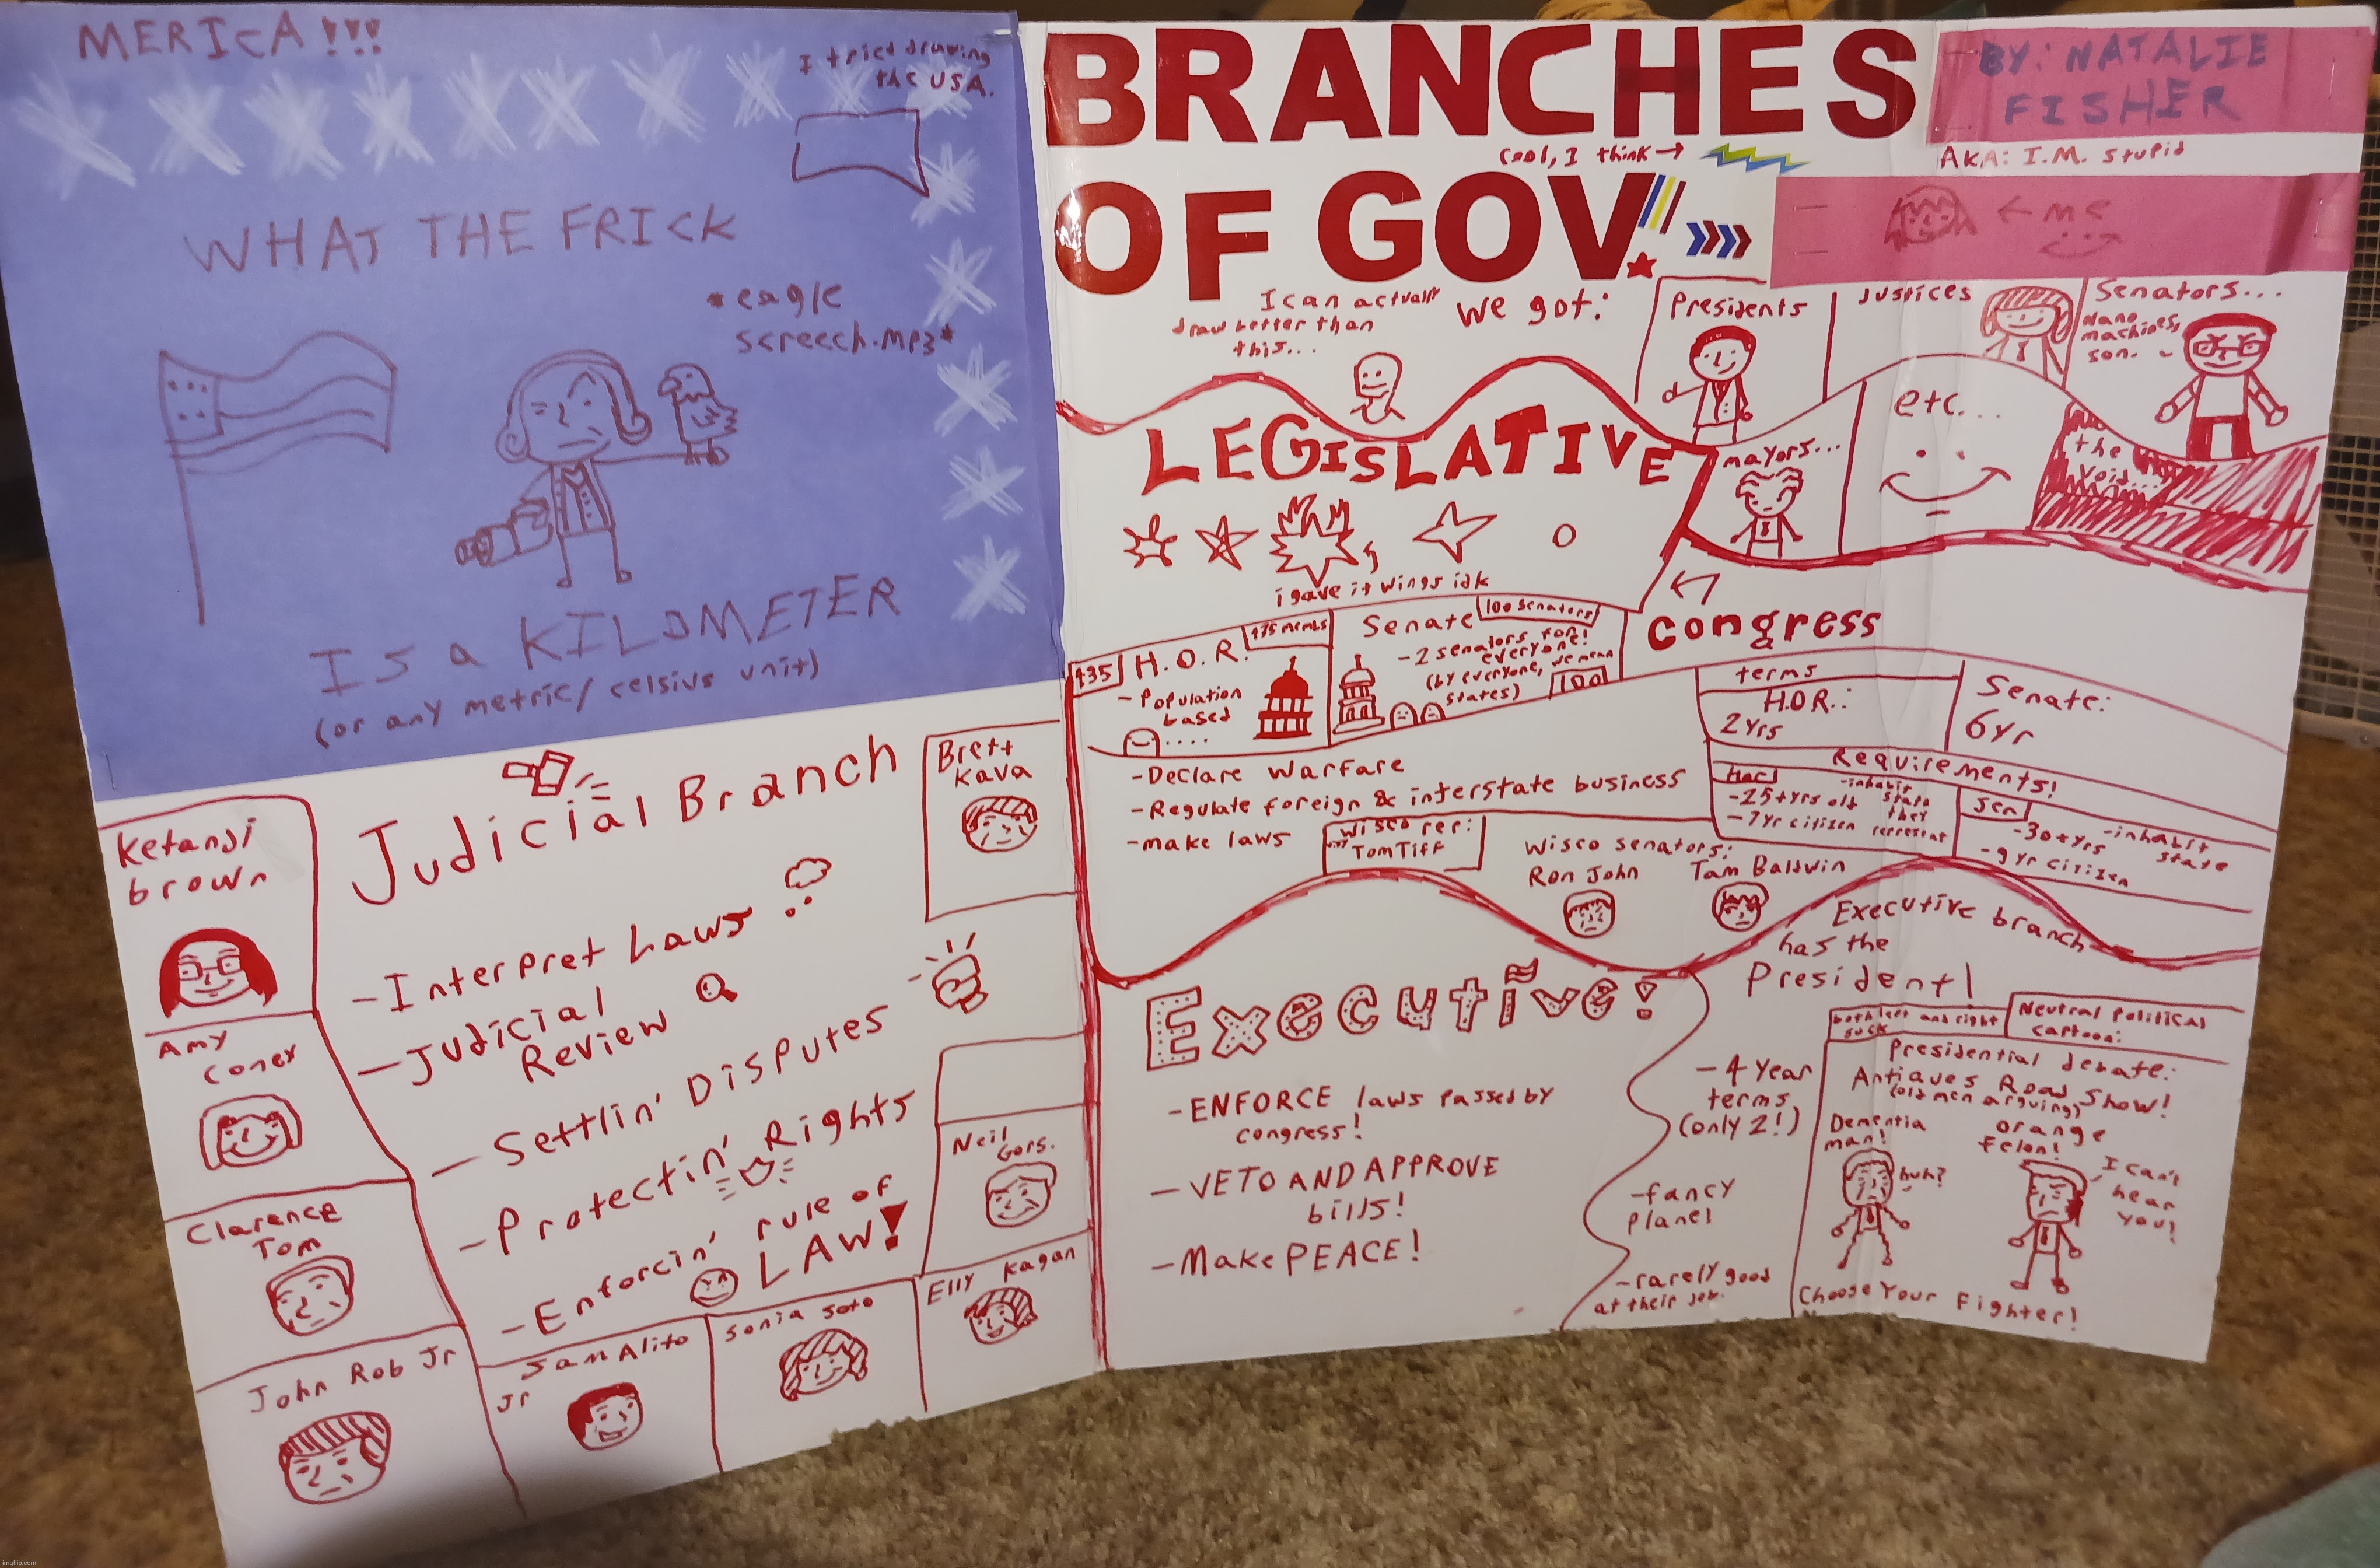 MERICA!!!
I tried drawing
the USA.
WHAT THE FRICK
*eagle
screech.mp3*
Is a KILOMETER
(or any metric/ celsius unit)
Judicial Branch
-Interpret Laws
-Judicial
Review
-Settlin' Disputes
-Protectin' Rights
-Enforcin' rule of
LAW!
Ketanji
brown
Amy
Coney
Clarence
Tom
John Rob Jr
Sam Alito
Jr
Sonia Soto
Elly Kagan
Neil
Gors.
Brett
Kava
BRANCHES
OF GOV
BY: NATALIE
FISHER
AKA: I.M. stupid
cool, I think→
← me
I can actually
draw better than
this...
We got:
Presidents
Justices
Senators...
Nano
machines,
son.
mayors...
etc....
the
Void...
LEGISLATIVE
i gave it wings idk
← congress
435
H.O.R.
435 membs
-Population
based
....
Senate
100 senators
-2 senators for
everyone!
(by everyone, we mean
states)
100
-Declare warfare
-Regulate foreign & interstate business
-make laws
Wisco rep:
Tom Tiff
Wisco senators:
Ron John
Tam Baldwin
terms
H.O.R.:
2yrs
Senate:
6yr
Requirements!
-25+yrs old
-7yr citizen
-inhabit
state
they
represent
Sen
-30+yrs
-9yr citizen
-inhabit
state
Executive!
-ENFORCE laws passed by
congress!
-VETO AND APPROVE
bills!
-Make PEACE!
Executive branch
has the
President!
-4 year
terms
(only 2!)
-fancy
plane!
-rarely good
at their job.
both left and right
suck
Neutral political
cartoon:
Presidential debate:
Antiques Road Show!
(old men arguing)
Dementia
man!
huh?
orange
felon!
I can't
hear
you!
Choose Your Fighter!
imgflip.com